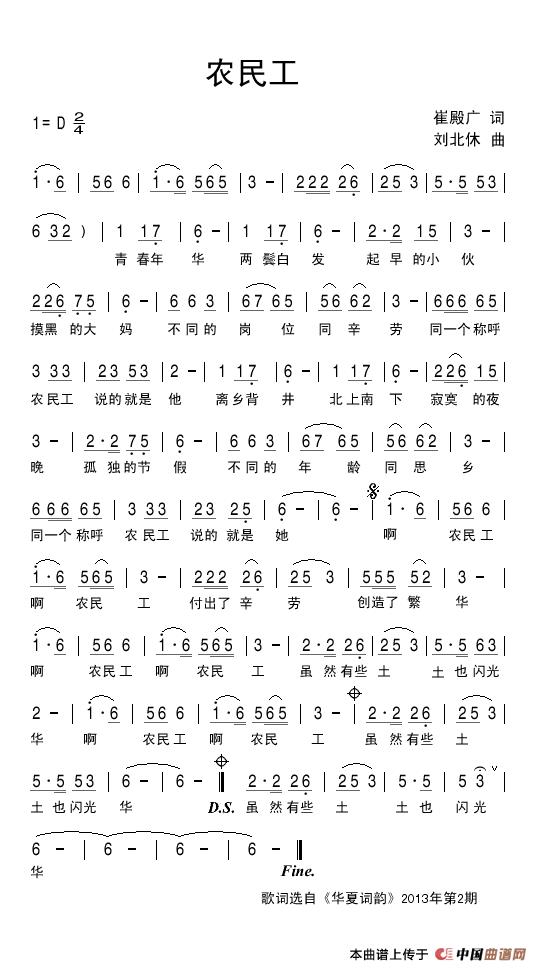 农民工
1=D 2/4
崔殿广 词
刘北休 曲
1·6 | 56 6 | 1·6 565 | 3 - | 222 26 | 25 3 | 5·5 53 |
6 32 ) | 1 17 | 6 - | 1 17 | 6 - | 2·2 15 | 3 - |
青 春年 华 两 鬓白 发 起 早 的小 伙
226 75 | 6 - | 6 6 3 | 67 65 | 56 62 | 3 - | 666 65 |
摸黑 的大 妈 不 同 的 岗 位 同 辛 劳 同一个 称呼
3 33 | 23 53 | 2 - | 1 17 | 6 - | 1 17 | 6 - | 226 15 |
农 民工 说的 就是 他 离 乡背 井 北 上南 下 寂寞 的夜
3 - | 2·2 75 | 6 - | 6 6 3 | 67 65 | 56 62 | 3 - |
晚 孤 独 的节 假 不 同 的 年 龄 同 思 乡
666 65 | 3 33 | 23 25 | 6 - | 6 - | 1·6 | 56 6 |
同一个 称呼 农 民工 说的 就是 她 啊 农民 工
1·6 565 | 3 - | 222 26 | 25 3 | 555 52 | 3 - |
啊 农民 工 付出了 辛 劳 创造了 繁 华
1·6 | 56 6 | 1·6 565 | 3 - | 2·2 26 | 25 3 | 5·5 63 |
啊 农民 工 啊 农民 工 虽 然 有些 土 土 也 闪光
2 - | 1·6 | 56 6 | 1·6 565 | 3 - | 2·2 26 | 25 3 |
华 啊 农民 工 啊 农民 工 虽 然 有些 土
5·5 53 | 6 - | 6 - | 2·2 26 | 25 3 | 5·5 | 5 3 ∨
土 也 闪光 华 D.S. 虽 然 有些 土 土 也 闪 光
6 - | 6 - | 6 - | 6 - |
华 Fine.
歌词选自《华夏词韵》2013年第2期
本曲谱上传于 中国曲谱网